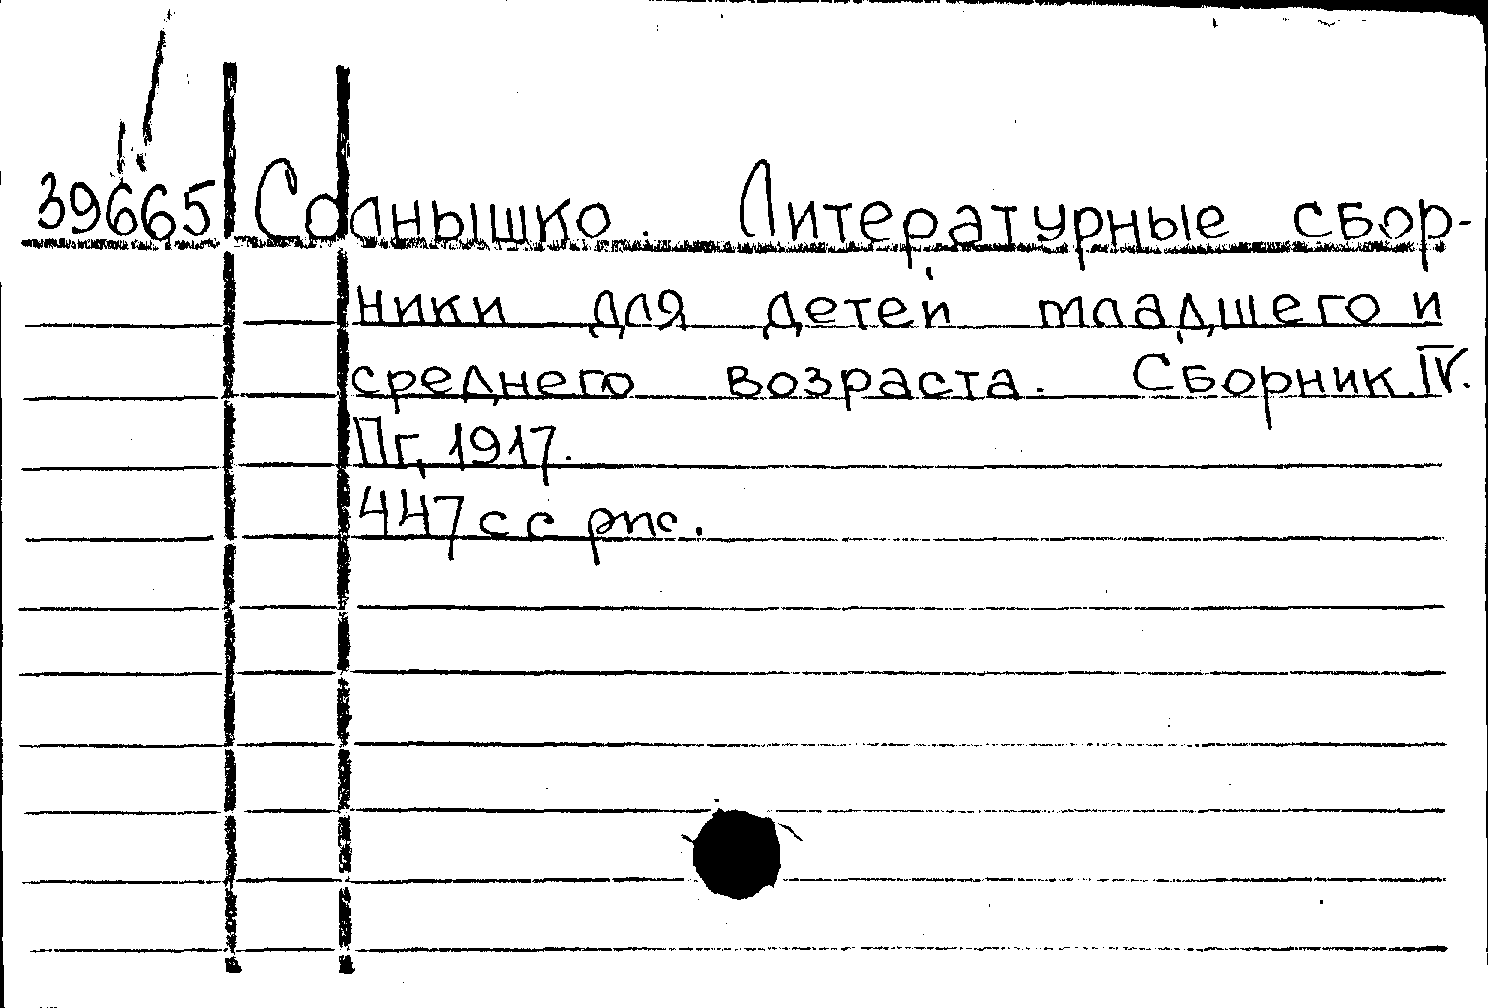 39665 Солнышко. Литературные сбор-
ники для детей младшего и
среднего возраста. Сборник IV.
Пг, 1917.
447 с с рис.